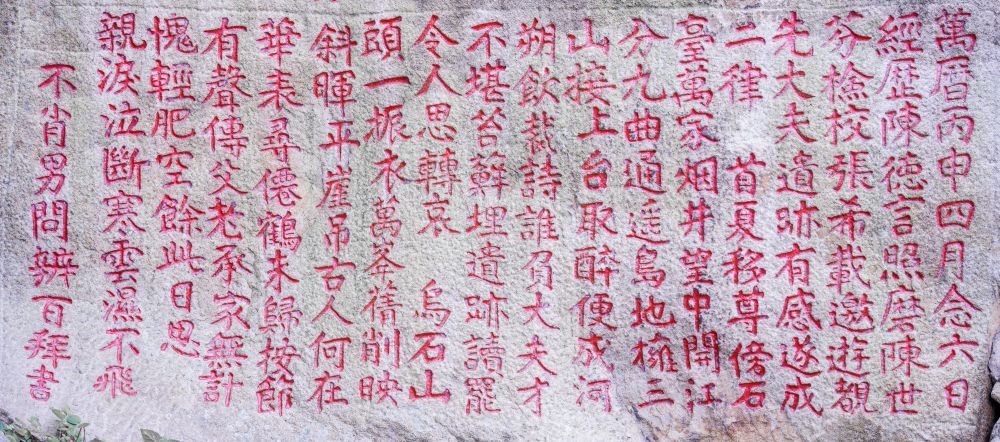 萬曆丙申四月念六日
經歷陳德言照磨陳世
芬檢校張希載邀遊覩
先大夫遺跡有感遂成
二律 首夏移尊傍石
臺萬家烟井望中開江
分九曲通遥島地擁三
山接上台取醉便成河
朔飲裁詩誰負大夫才
不堪苔蘚埋遺跡讀罷
令人思轉哀 烏石山
頭一振衣萬峯蒨削映
斜暉平崖吊古人何在
華表尋僊鶴未歸按節
有聲傳父老承家無計
愧輕肥空餘此日思
親淚泣斷寒雲濕不飛
不肖男問辨百拜書